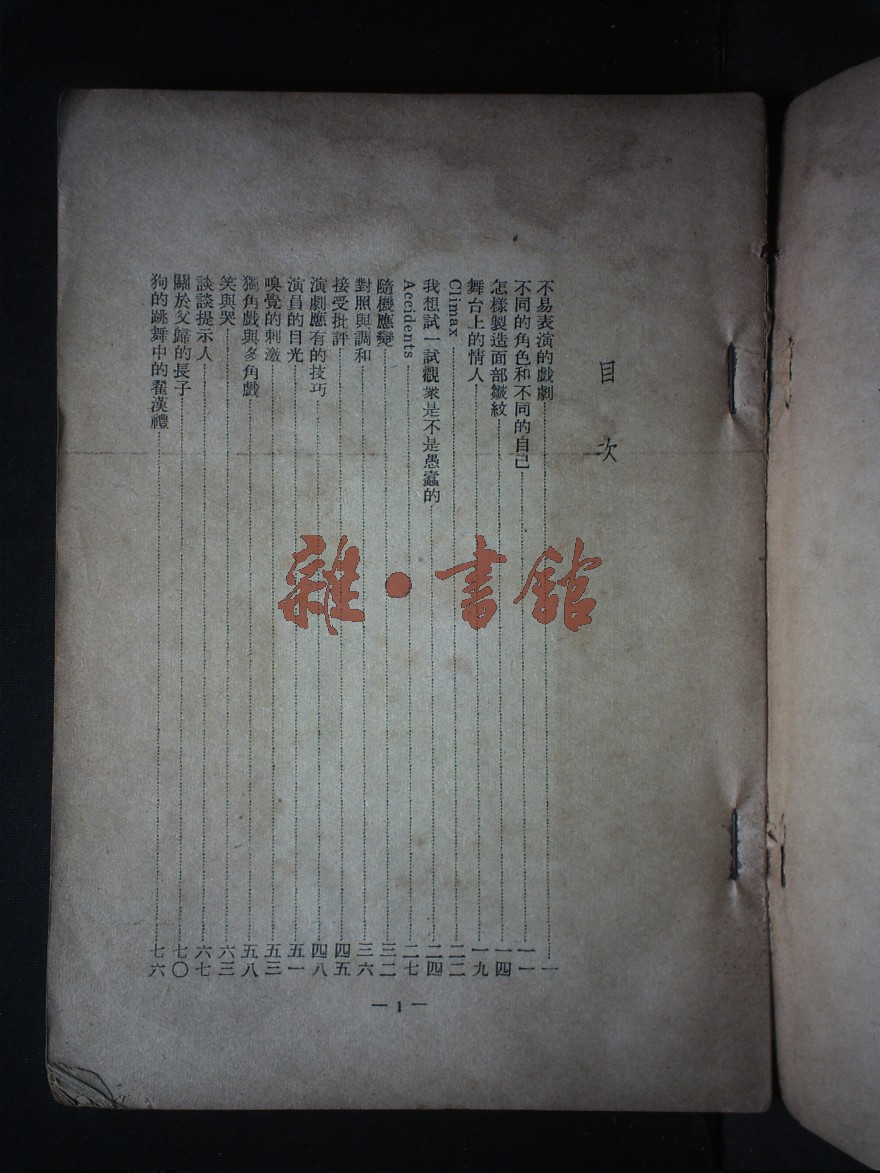 目次
不易表演的戲劇……一
不同的角色和不同的自己……一一
怎樣製造面部皺紋……一四
舞台上的情人……一九
Climax……二二
我想試一試觀衆是不是愚蠢的……二四
Accidents……二七
隨機應變……三二
對照與調和……三六
接受批評……四五
演劇應有的技巧……四八
演員的目光……五一
嗅覺的刺激……五三
獨角戲與多角戲……五八
笑與哭……六三
談談提示人……六七
關於父歸的長子……七〇
狗的跳舞中的翟漢禮……七六
— 1 —
雜·書館